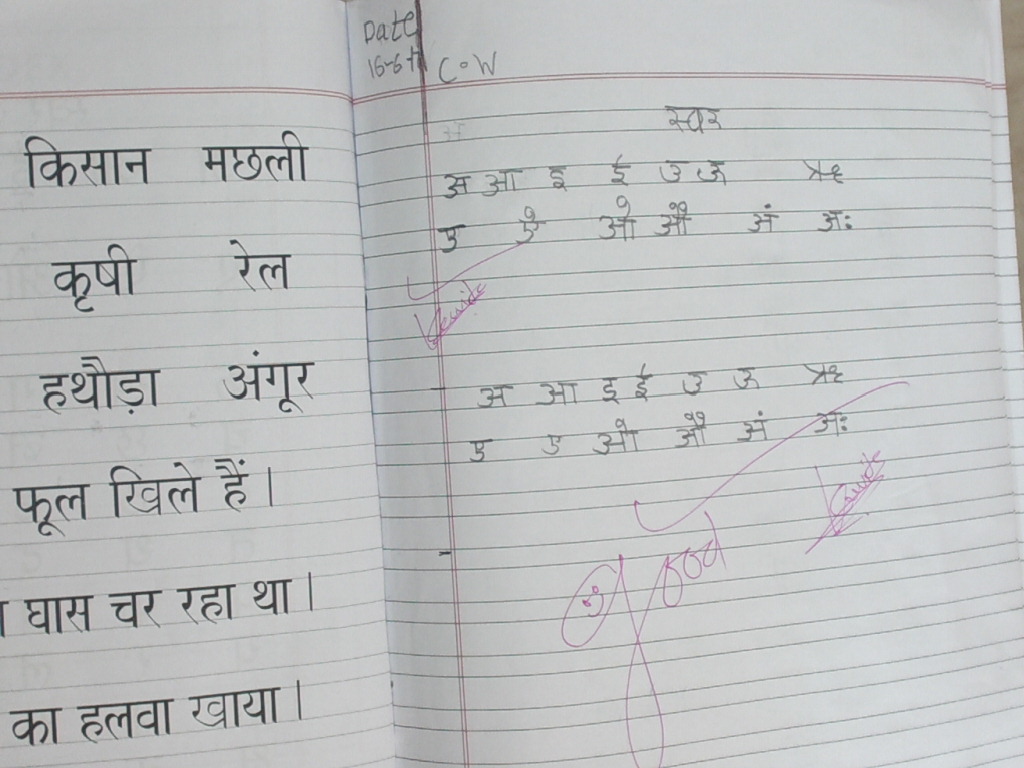 किसान मछली
कृषी रेल
हथौड़ा अंगूर
फूल खिले हैं।
घास चर रहा था।
का हलवा खाया।
Date
C.W
स्वर
अ आ इ ई उ ऊ ऋ
ए ऐ ओ औ अं अः
अ आ इ ई उ ऊ ऋ
ए ए ओ औ अं अः
Good